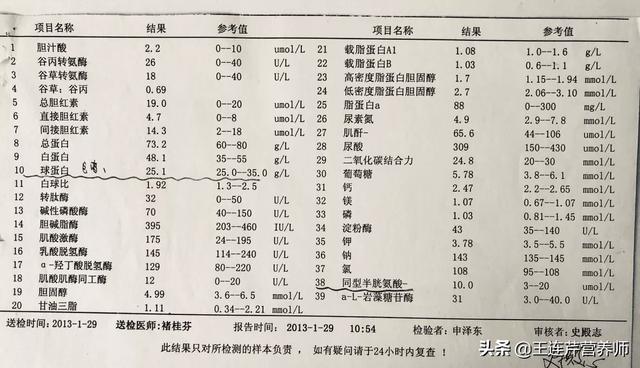 项目名称 结果 参考值 项目名称 结果 参考值
1 胆汁酸 2.2 0--10 umol/L 21 载脂蛋白A1 1.08 1.0--1.6 g/L
2 谷丙转氨酶 26 0--40 U/L 22 载脂蛋白B 1.03 0.6--1.1 g/L
3 谷草转氨酶 18 0--40 U/L 23 高密度脂蛋白胆固醇 1.7 1.15--1.94 mmol/L
4 谷草:谷丙 0.69 24 低密度脂蛋白胆固醇 2.7 2.06--3.10 mmol/L
5 总胆红素 19.0 0--20 umol/L 25 脂蛋白a 88 0--300 mg/L
6 直接胆红素 4.7 0--8 umol/L 26 尿素氮 4.9 2.9--7.8 mmol/L
7 间接胆红素 14.3 2--18 umol/L 27 肌酐- 65.6 44--106 umol/L
8 总蛋白 73.2 60--80 g/L 28 尿酸 309 150--430 umol/L
9 白蛋白 48.1 35--55 g/L 29 二氧化碳结合力 24.8 20--30 mmol/L
10 球蛋白 25.1 25.0--35.0 g/L 30 葡萄糖 5.78 3.8--6.1 mmol/L
11 白球比 1.92 1.3--2.5 31 钙 2.47 2.2--2.65 mmol/L
12 转肽酶 32 0--50 U/L 32 镁 1.07 0.67--1.07 mmol/L
13 碱性磷酸酶 70 40--150 U/L 33 磷 1.03 0.81--1.45 mmol/L
14 胆碱脂酶 395 203--460 IU/L 34 淀粉酶 43 35--140 U/L
15 肌酸激酶 175 24--195 U/L 35 钾 3.78 3.5--5.5 mmol/L
16 乳酸脱氢酶 145 114--240 U/L 36 钠 143 135--145 mmol/L
17 α-羟丁酸脱氢酶 129 80--220 U/L 37 氯 108 95--108 mmol/L
18 肌酸肌酶同工酶 12 0--20 U/L 38 同型半胱氨酸- 10.0 3--20 umol/L
19 胆固醇 4.99 3.6--6.5 mmol/L 39 a-L-岩藻糖苷酶 31 3.0--40.0 U/L
20 甘油三脂 1.11 0.34--2.21 mmol/L
送检时间:2013-1-29 送检医师:褚桂芬 报告时间:2013-1-29 10:54 检验者:申泽东 审核者:史殿志
此结果只对所检测的样本负责,如有疑问请于24小时内复查!
头条@王连芹营养师